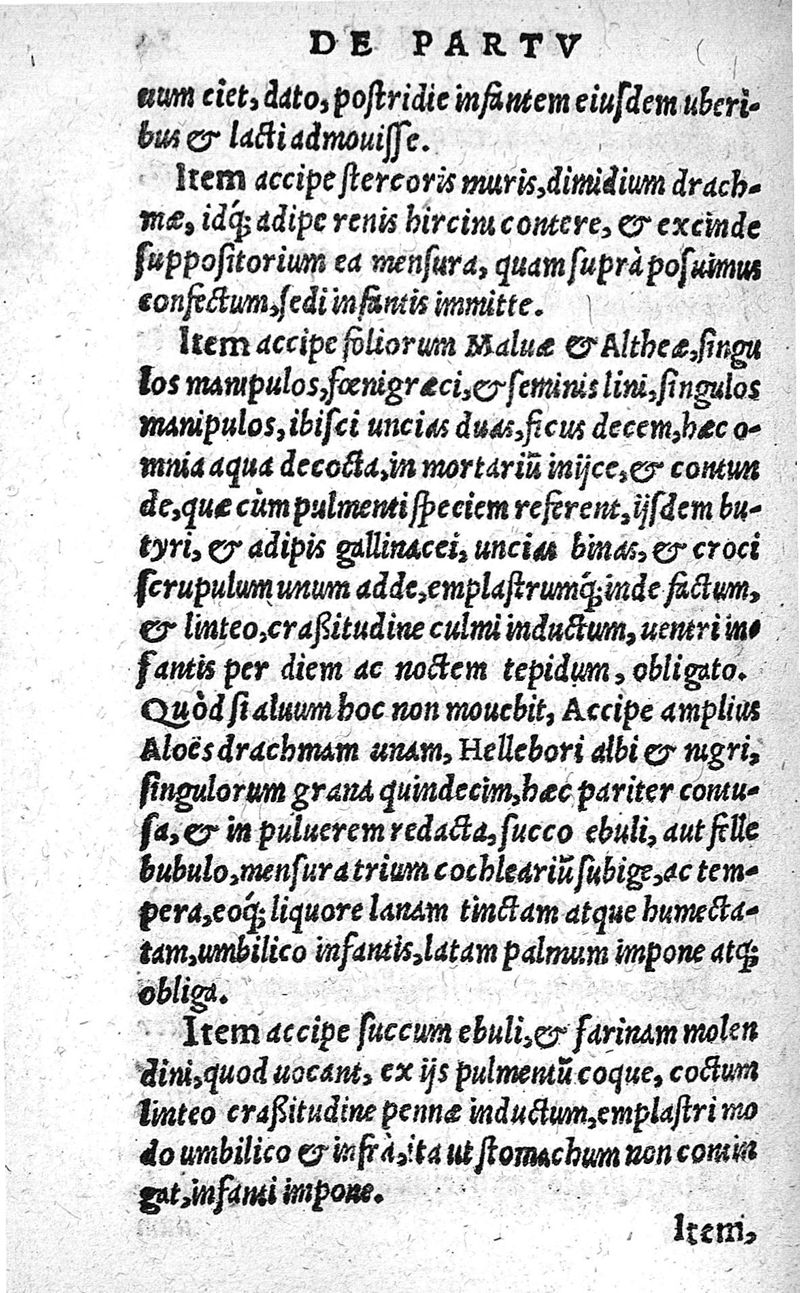 DE PARTV
uum ciet, dato, postridie infantem eiusdem uberi-
bus & lacti admouisse.
Item accipe stercoris muris, dimidium drach-
mæ, idq́; adipe renis hircini contere, & exinde
suppositorium ea mensura, quam suprà posuimus
confectum, sedi infantis immitte.
Item accipe foliorum Maluæ & Altheæ, singu
los manipulos, fœnigræci, & seminis lini, singulos
manipulos, ibisci uncias duas, ficus decem, hæc o-
mnia aqua decocta, in mortariũ inijce, & contun
de, quæ cùm pulmenti speciem referent, ijsdem bu-
tyri, & adipis gallinacei, uncias binas, & croci
scrupulum unum adde, emplastrumq́; inde factum,
& linteo, craßitudine culmi inductum, uentri in-
fantis per diem ac noctem tepidum, obligato.
Quòd si aluum hoc non mouebit, Accipe amplius
Aloës drachmam unam, Hellebori albi & nigri,
singulorum grana quindecim, hæc pariter contu-
sa, & in puluerem redacta, succo ebuli, aut felle
bubulo, mensura trium cochleariũ subige, ac tem-
pera, eoq́; liquore lanam tinctam atque humecta-
tam, umbilico infantis, latam palmum impone atq;
obliga.
Item accipe succum ebuli, & farinam molen
dini, quod uocant, ex ijs pulmentũ coque, coctum
linteo craßitudine pennæ inductum, emplastri mo
do umbilico & infrà, ita ut stomachum non contin
gat, infanti impone.
Item,